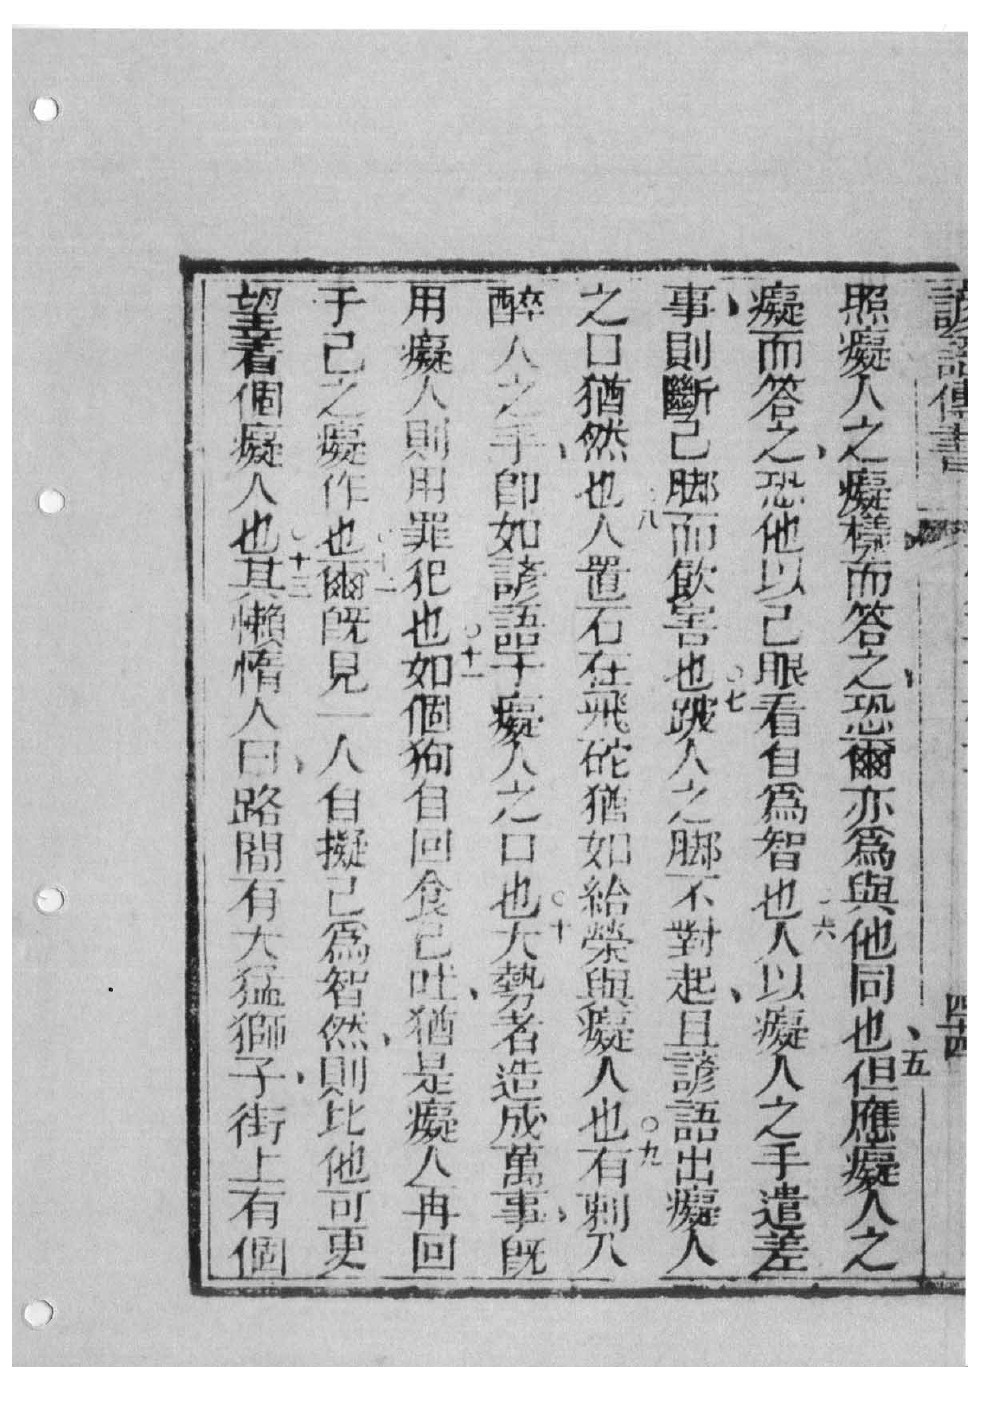 諺語傳書
四十四
照癡人之癡樣而答之、恐爾亦爲與他同也、五但應癡人之
癡而答之、恐他以己眼看自爲智也○六人以癡人之手遣差
事、則斷己脚而飲害也○七跛人之脚不對起、且諺語出癡人
之口猶然也○八人置石在飛砣猶如給榮與癡人也○九有刺入
醉人之手、即如諺語于癡人之口也○十大勢者造成萬事、既
用癡人則用罪犯也○十一如個狗自回食己吐、猶是癡人再回
于己之癡作也○十二爾既見一人自擬己爲智然、則比他可更
望着個癡人也○十三其懶惰人曰、路間有大猛獅子、街上有個